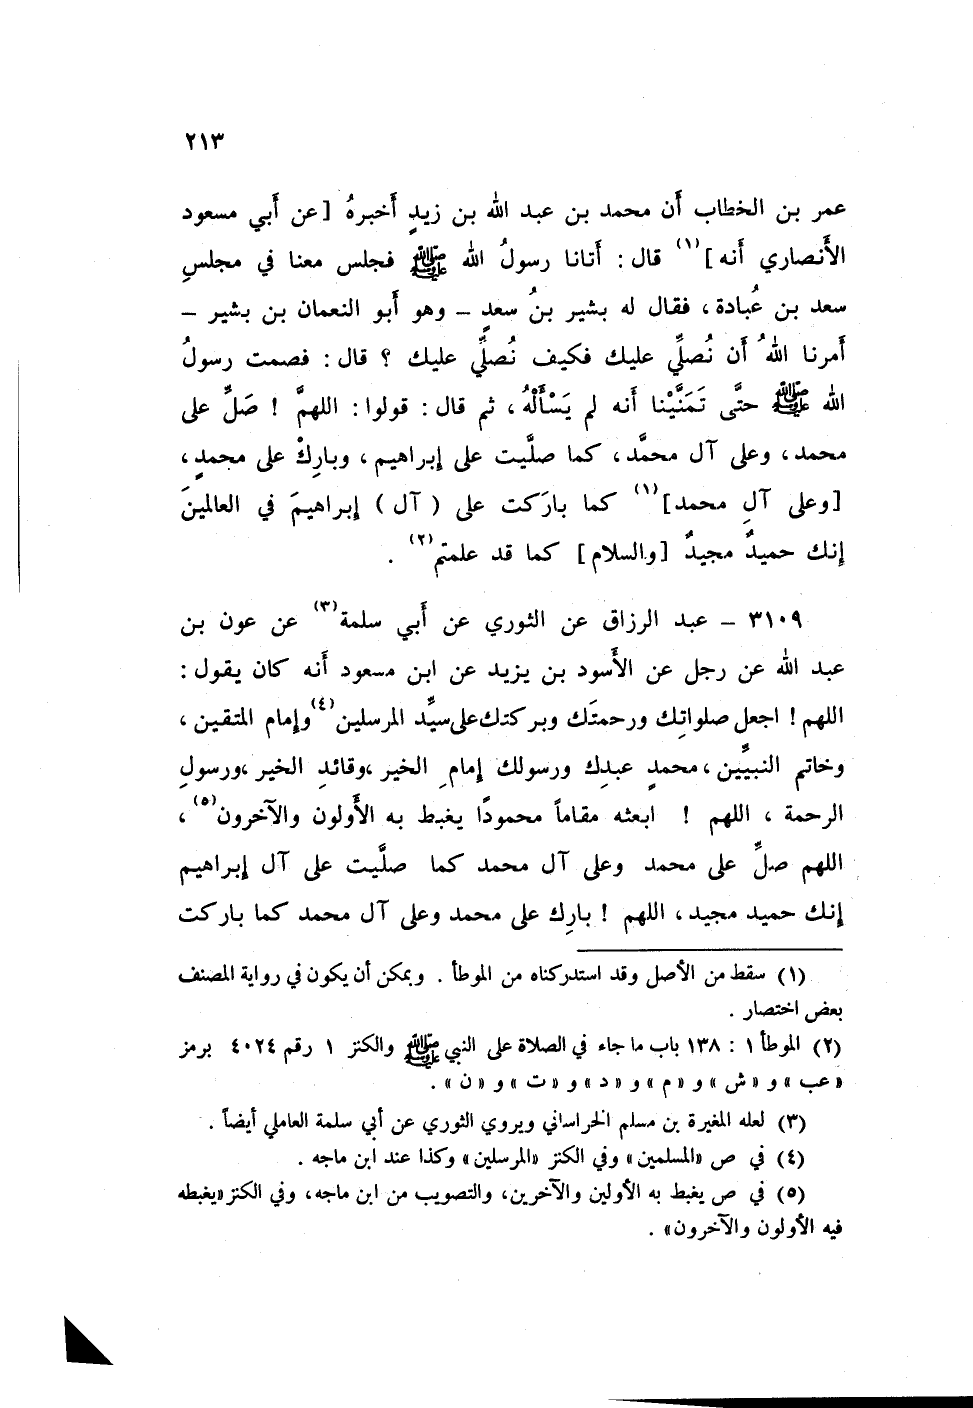 ٢١٣
عمر بن الخطاب أَن محمد بن عبد الله بن زيدٍ أَخبرهُ [عن أَبي مسعود
الأَنصاري أَنه] (١) قال : أَتانا رسولُ الله ﷺ فجلس معنا في مجلسِ
سعد بن عُبادة ، فقال له بشير بنُ سعدٍ – وهو أَبو النعمان بن بشير –
أَمرنا اللهُ أَن نُصلِّي عليك فكيف نُصلِّي عليك ؟ قال : فصمت رسولُ
الله ﷺ حتَّى تَمَنَّيْنا أَنه لم يَسْأَلْهُ ، ثم قال : قولوا : اللهمَّ ! صَلِّ على
محمد ، وعلى آل محمَّد ، كما صلَّيت على إبراهيم ، وبارِكْ على محمدٍ ،
[وعلى آلِ محمد] (١) كما بارَكت على (آل) إبراهيمَ في العالمينَ
إنك حميدٌ مجيدٌ [والسلام] كما قد علمتم (٢) .
٣١٠٩ – عبد الرزاق عن الثوري عن أَبي سلمة (٣) عن عون بن
عبد الله عن رجل عن الأَسود بن يزيد عن ابن مسعود أَنه كان يقول :
اللهم ! اجعل صلواتِك ورحمتَك وبركتك على سيِّد المرسلين (٤) وإمام المتقين ،
وخاتم النبيِّين ، محمدٍ عبدِك ورسولك إمامِ الخير ، وقائدِ الخير ، ورسولِ
الرحمة ، اللهم ! ابعثه مقاماً محمودًا يغبط به الأَولون والآخرون (٥) ،
اللهم صلِّ على محمد وعلى آل محمد كما صلَّيت على آل إبراهيم
إنك حميد مجيد ، اللهم ! بارِك على محمد وعلى آل محمد كما باركت
(١) سقط من الأصل وقد استدركناه من الموطأ . ويمكن أن يكون في رواية المصنف
بعض اختصار .
(٢) الموطأ ١ : ١٣٨ باب ما جاء في الصلاة على النبي ﷺ والكنز ١ رقم ٤٠٢٤ برمز
«عب» و «ش» و «م» و «د» و «ت» و «ن» .
(٣) لعله المغيرة بن مسلم الخراساني ويروي الثوري عن أبي سلمة العاملي أيضاً .
(٤) في ص «المسلمين» وفي الكنز «المرسلين» وكذا عند ابن ماجه .
(٥) في ص يغبط به الأولين والآخرين، والتصويب من ابن ماجه، وفي الكنز «يغبطه
فيه الأولون والآخرون» .